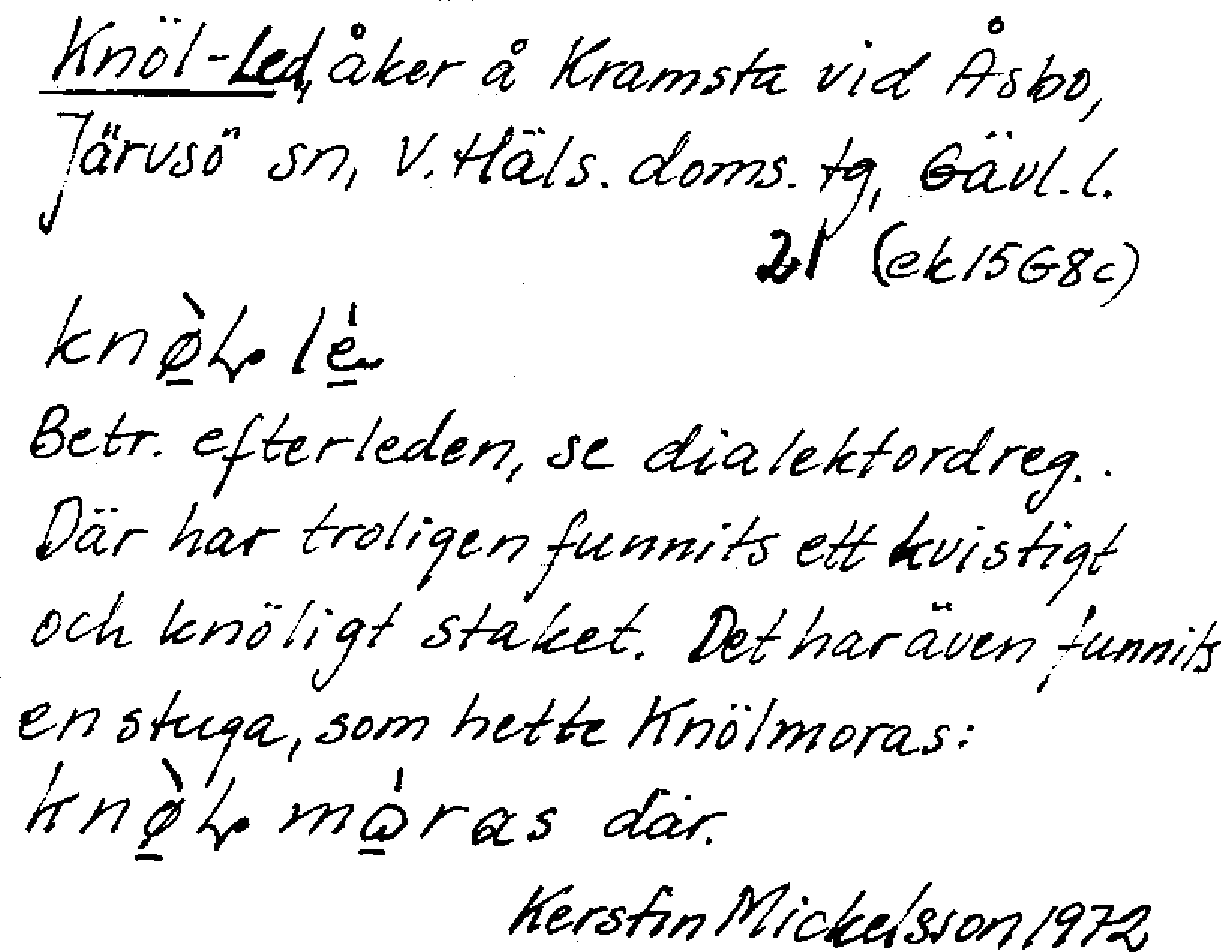 Knöl-Led, åker å Kramsta vid Åsbo,
Järvsö sn, V. Häls. doms. tg, Gävl. l.
21 (ek 15G8c)
Betr. efterleden, se dialektordreg..
Där har troligen funnits ett kvistigt
och knöligt staket. Det har även funnits
en stuga, som hette Knölmoras:
där.
Kerstin Mickelsson 1972